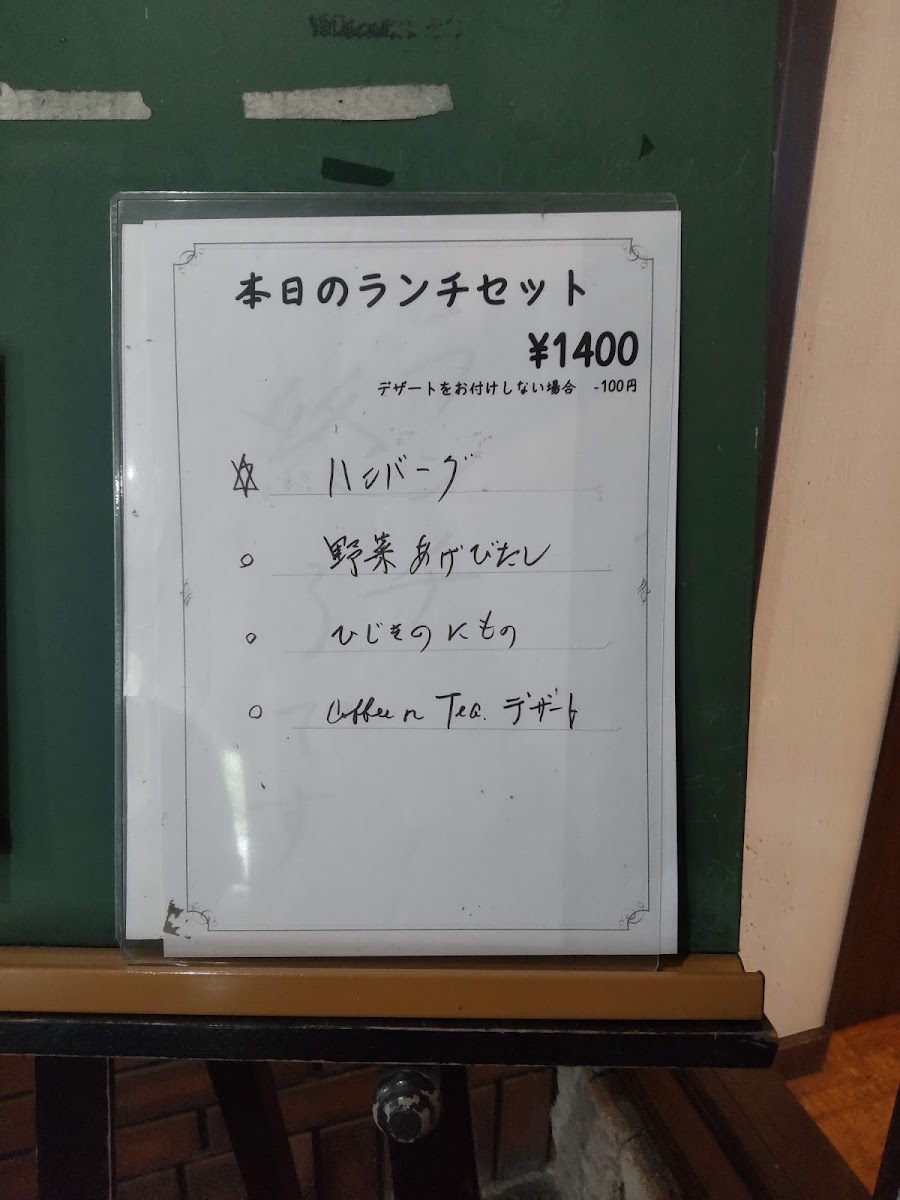 本日のランチセット
¥1400
デザートをお付けしない場合 -100円
☆ ハンバーグ
○ 野菜あげびたし
○ ひじきのにもの
○ Coffee or Tea. デザート